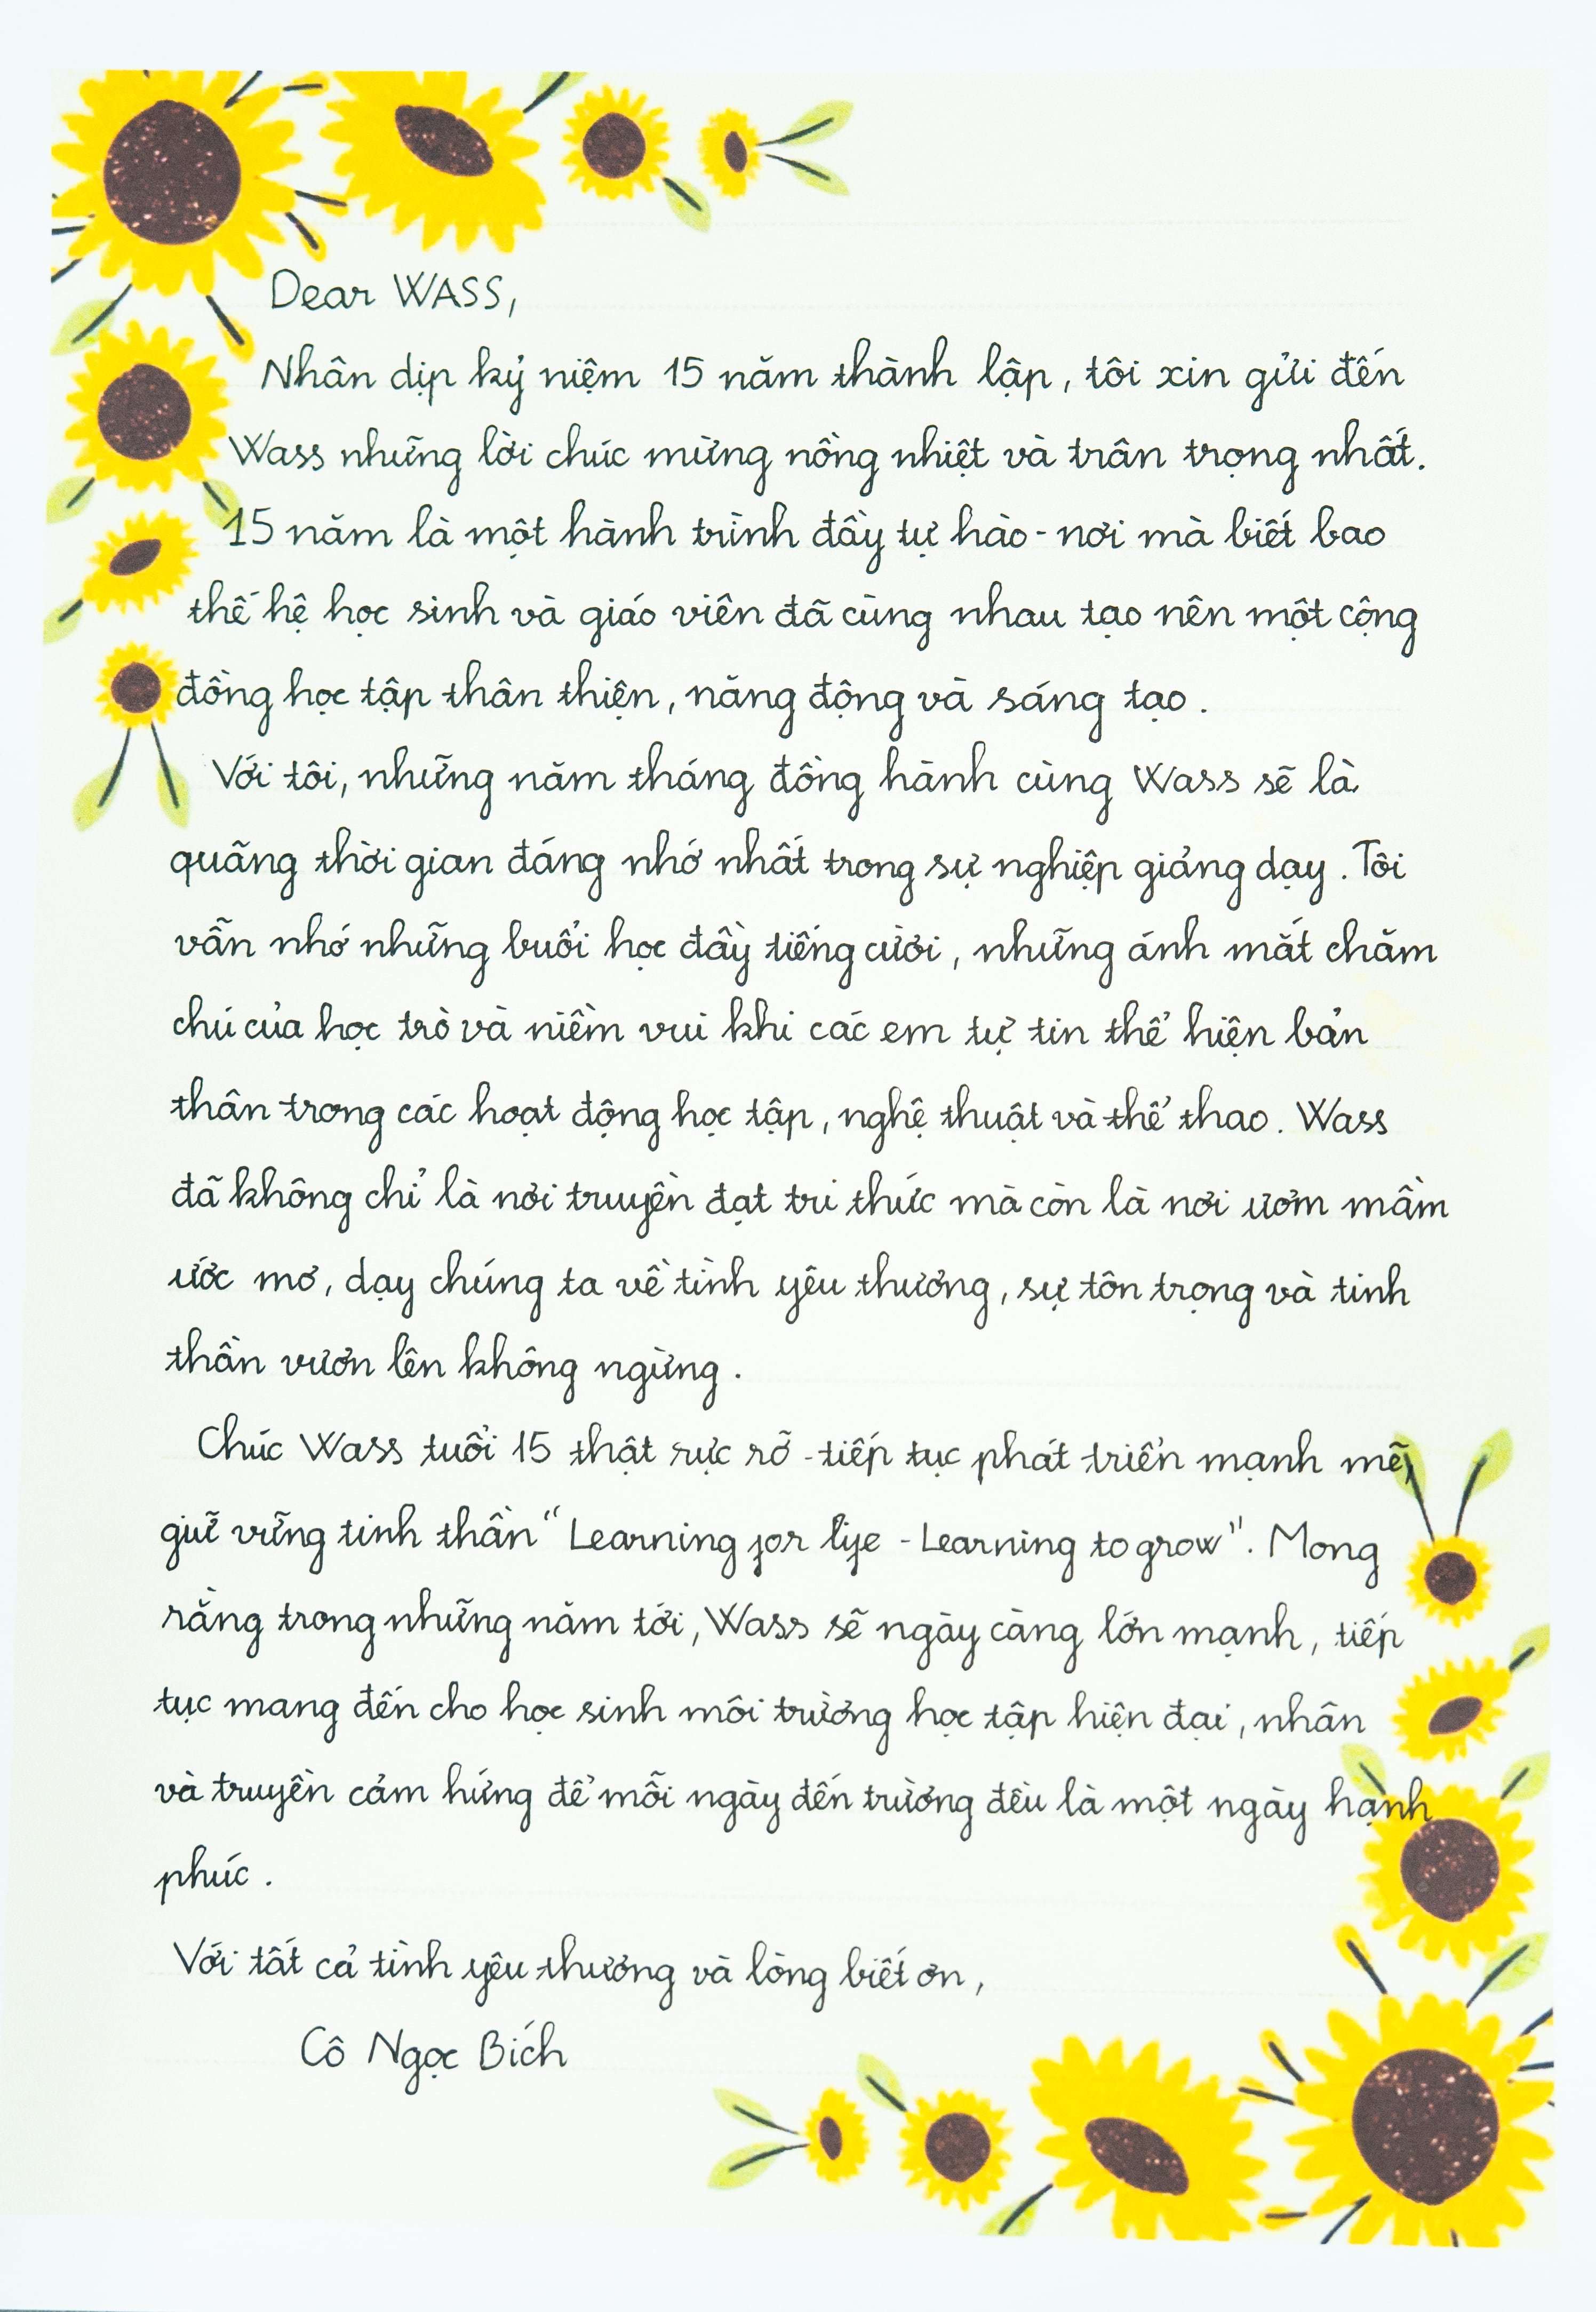 Dear WASS,
Nhân dịp kỷ niệm 15 năm thành lập, tôi xin gửi đến
Wass những lời chúc mừng nồng nhiệt và trân trọng nhất.
15 năm là một hành trình đầy tự hào - nơi mà biết bao
thế hệ học sinh và giáo viên đã cùng nhau tạo nên một cộng
đồng học tập thân thiện, năng động và sáng tạo.
Với tôi, những năm tháng đồng hành cùng Wass sẽ là
quãng thời gian đáng nhớ nhất trong sự nghiệp giảng dạy. Tôi
vẫn nhớ những buổi học đầy tiếng cười, những ánh mắt chăm
chú của học trò và niềm vui khi các em tự tin thể hiện bản
thân trong các hoạt động học tập, nghệ thuật và thể thao. Wass
đã không chỉ là nơi truyền đạt tri thức mà còn là nơi ươm mầm
ước mơ, dạy chúng ta về tình yêu thương, sự tôn trọng và tinh
thần vươn lên không ngừng.
Chúc Wass tuổi 15 thật rực rỡ - tiếp tục phát triển mạnh mẽ,
giữ vững tinh thần "Learning for life - Learning to grow". Mong
rằng trong những năm tới, Wass sẽ ngày càng lớn mạnh, tiếp
tục mang đến cho học sinh môi trường học tập hiện đại, nhân
và truyền cảm hứng để mỗi ngày đến trường đều là một ngày hạnh
phúc.
Với tất cả tình yêu thương và lòng biết ơn,
Cô Ngọc Bích